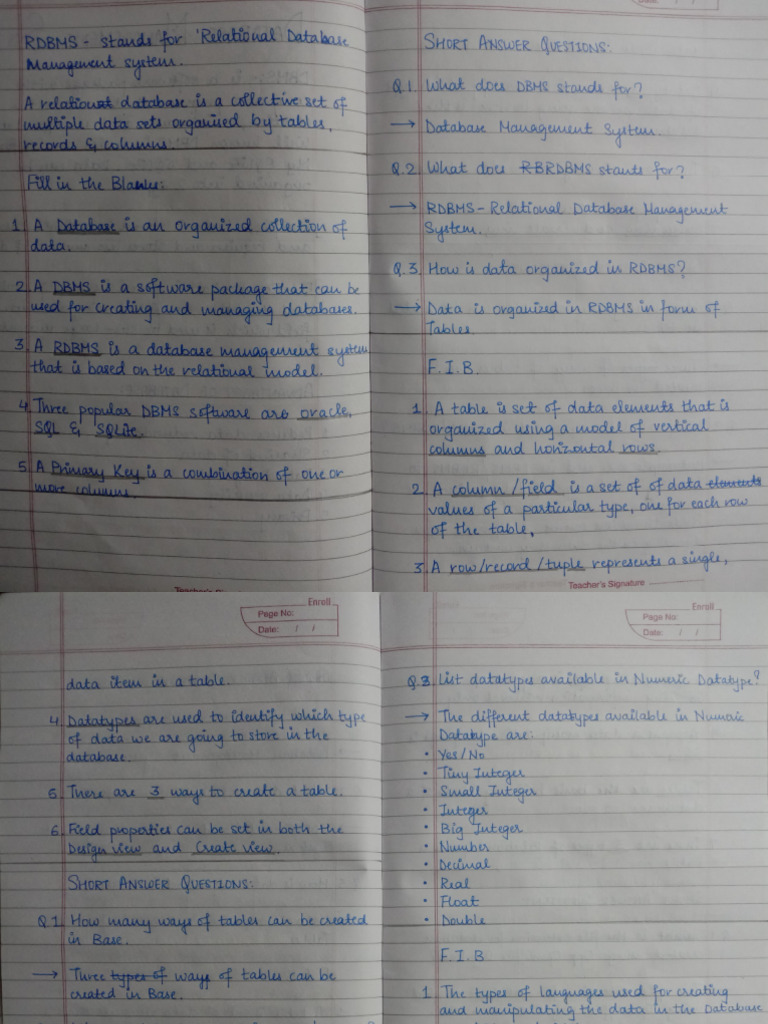 RDBMS - stands for Relational Database
Management system.
A relational database is a collective set of
multiple data sets organised by tables,
records & columns.
Fill in the Blanks:
1. A Database is an organized collection of
data.
2. A DBMS is a software package that can be
used for creating and managing databases.
3. A RDBMS is a database management system
that is based on the relational model.
4. Three popular DBMS software are oracle,
SQL & SQLite.
5. A Primary Key is a combination of one or
more columns.
SHORT ANSWER QUESTIONS:
Q.1. What does DBMS stands for?
→ Database Management System.
Q.2. What does RBRDBMS stands for?
→ RDBMS - Relational Database Management
System.
Q.3. How is data organized in RDBMS?
→ Data is organized in RDBMS in form of
Tables
F.I.B.
1. A table is set of data elements that is
organized using a model of vertical
columns and horizontal rows.
2. A column/field is a set of of data elements
values of a particular type, one for each row
of the table,
3. A row/record/tuple represents a single,
Teacher's Signature
Enroll
Page No:
Date: / /
data item in a table.
4. Datatypes are used to identify which type
of data we are going to store in the
database.
5. There are 3 ways to create a table.
6. Field properties can be set in both the
Design view and Create view.
SHORT ANSWER QUESTIONS:
Q.1. How many ways of tables can be created
in Base.
→ Three types of ways of tables can be
created in Base.
Enroll
Page No:
Date: / /
Q.3. List datatypes available in Numeric Datatype?
→ The different datatypes available in Numeric
Datatype are:
• Yes/No
• Tiny Integer
• Small Integer
• Integer
• Big Integer
• Number
• Decimal
• Real
• Float
• Double
F.I.B
1. The types of languages used for creating
and manipulating the data in the Database